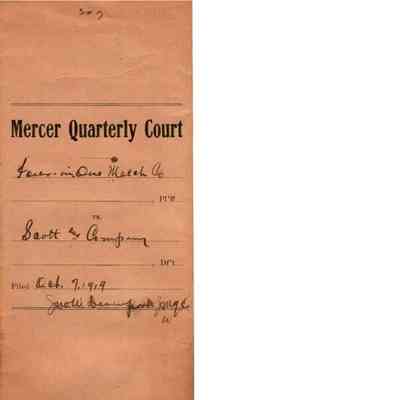 Mercer Quarterly Court
Four-in-One Match Co
PLFF.
vs.
Scott & Company
DFT.
Filed Oct. 7, 1919